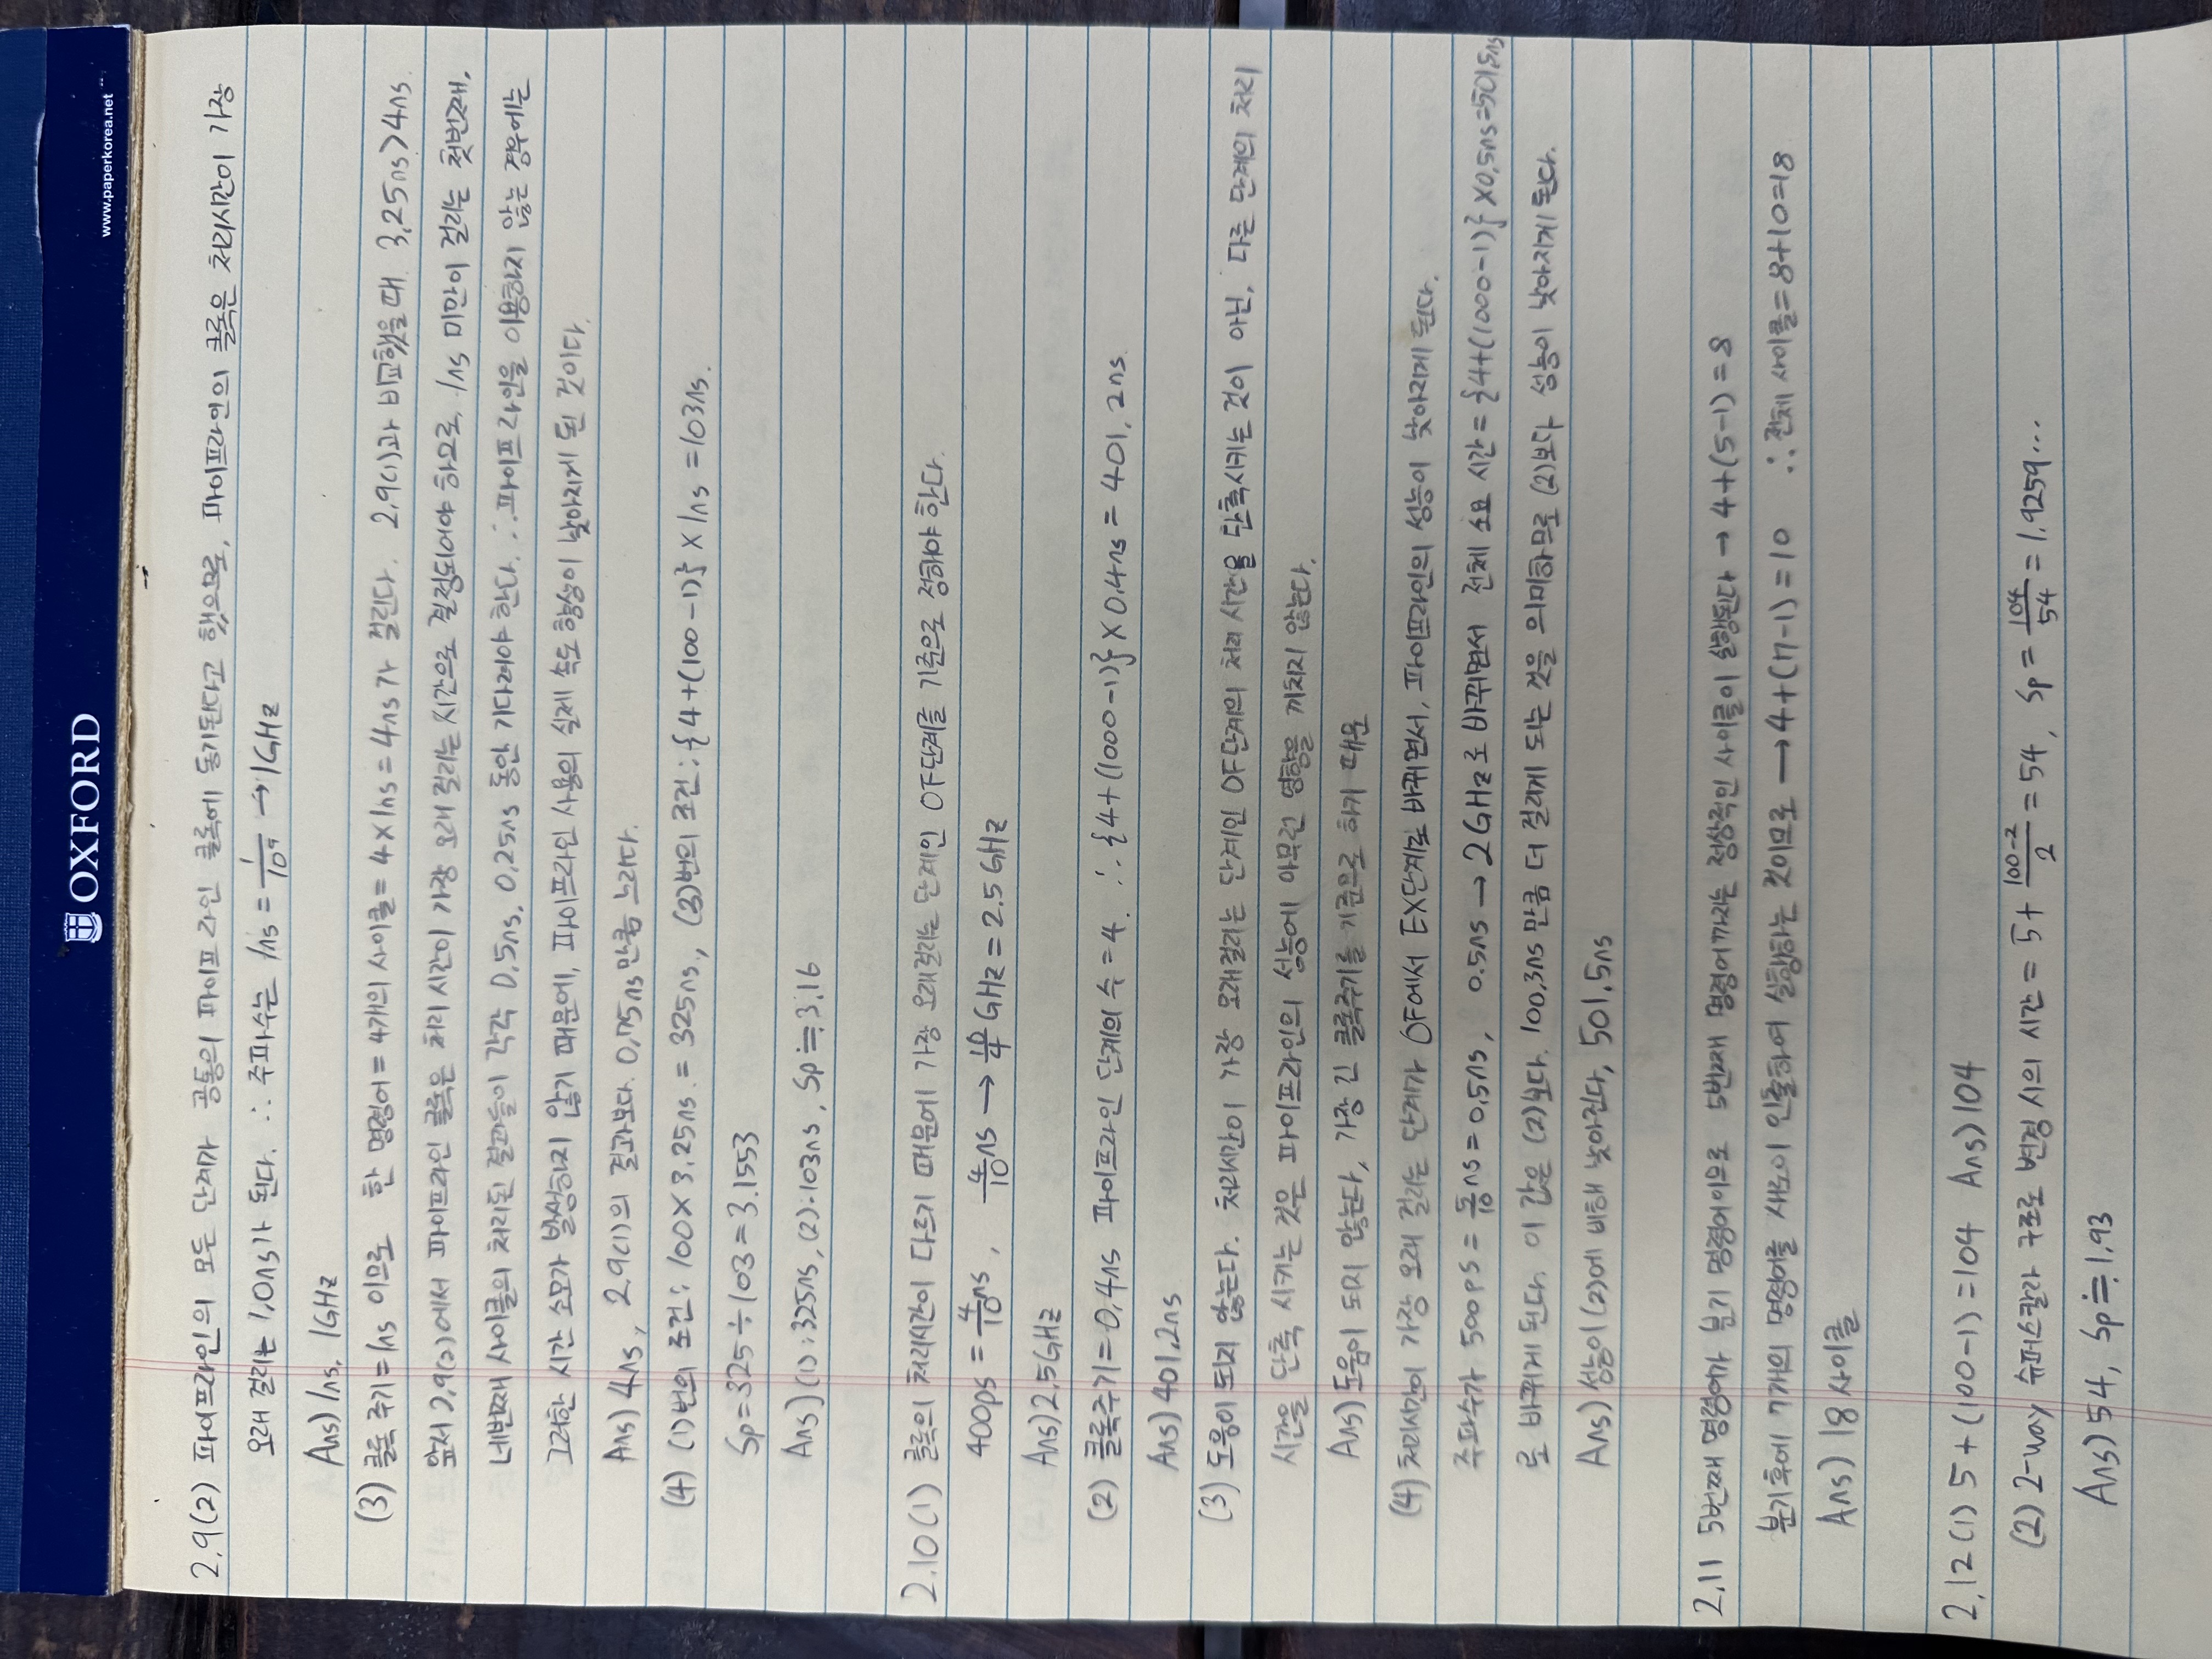 OXFORD
www.paperkorea.net
2.9(2) 파이프라인의 모든 단계가 공통의 파이프라인 클록에 동기된다고 했으므로, 파이프라인의 클록은 처리시간이 가장
오래 걸리는 1.0ns가 된다. ∴ 주파수는 1ns = 1/10⁹ → 1GHz
Ans) 1ns, 1GHz
(3) 클록 주기=1ns 이므로 한 명령어 = 4개의 사이클 = 4×1ns = 4ns가 걸린다. 2.9(1)과 비교했을 때 3.25ns>4ns.
앞서 2.9(2)에서 파이프라인 클록은 처리 시간이 가장 오래 걸리는 시간으로 결정되어야 하므로, 1ns 미만이 걸리는 첫번째,
네번째 사이클의 처리된 결과들이 각각 0.5ns, 0.25ns 동안 기다려야 한다. ∴파이프라인을 이용하지 않는 경우에는
그러한 시간 소모가 발생하지 않기 때문에, 파이프라인 사용의 실제 속도 향상이 낮아지게 된 것이다.
Ans) 4ns, 2.9(1)의 결과보다 0.75ns만큼 느리다.
(4) (1)번의 조건 : 100×3.25ns = 325ns, (3)번의 조건 : {4+(100-1)}×1ns = 103ns.
Sp=325÷103=3.1553
Ans) (1) : 325ns, (2) : 103ns, Sp≒3.16
2.10(1) 클록의 처리시간이 다르기 때문에 가장 오래걸리는 단계인 OF단계를 기준으로 정해야 한다.
400ps = 4/10 ns, 4/10 ns → 10/4 GHz = 2.5 GHz
Ans) 2.5GHz
(2) 클록주기=0.4ns 파이프라인 단계의 수=4. ∴ {4+(1000-1)}×0.4ns = 401.2ns.
Ans) 401.2ns
(3) 도움이 되지 않는다. 처리시간이 가장 오래걸리는 단계인 OF단계의 처리 시간을 단축시키는 것이 아닌, 다른 단계의 처리
시간을 단축 시키는 것은 파이프라인의 성능에 아무런 영향을 끼치지 않는다.
Ans) 도움이 되지 않는다, 가장 긴 클록주기를 기준으로 하기 때문
(4) 처리시간이 가장 오래 걸리는 단계가 OF에서 EX단계로 바뀌면서, 파이프라인의 성능이 낮아지게 된다.
주파수가 500ps = 5/10 ns = 0.5ns, 0.5ns → 2GHz로 바뀌면서 전체 소요 시간 = {4+(1000-1)}×0.5ns=501.5ns
로 바뀌게 된다. 이 값은 (2)보다 100.3ns 만큼 더 걸리게 되는 것을 의미하므로 (2)보다 성능이 낮아지게 된다.
Ans) 성능이 (2)에 비해 낮아진다, 501.5ns
2.11 5번째 명령어가 분기 명령어이므로 5번째 명령어까지는 정상적인 사이클이 실행된다 → 4+(5-1)=8
분기후에 7개의 명령어를 새로이 인출하여 실행하는 것이므로 → 4+(7-1)=10 ∴전체 사이클=8+10=18
Ans) 18 사이클
2.12 (1) 5+(100-1)=104 Ans) 104
(2) 2-way 슈퍼스칼라 구조로 변경 시의 시간 = 5+ (100-2)/2 = 54, Sp = 104/54 = 1.9259…
Ans) 54, Sp≒1.93